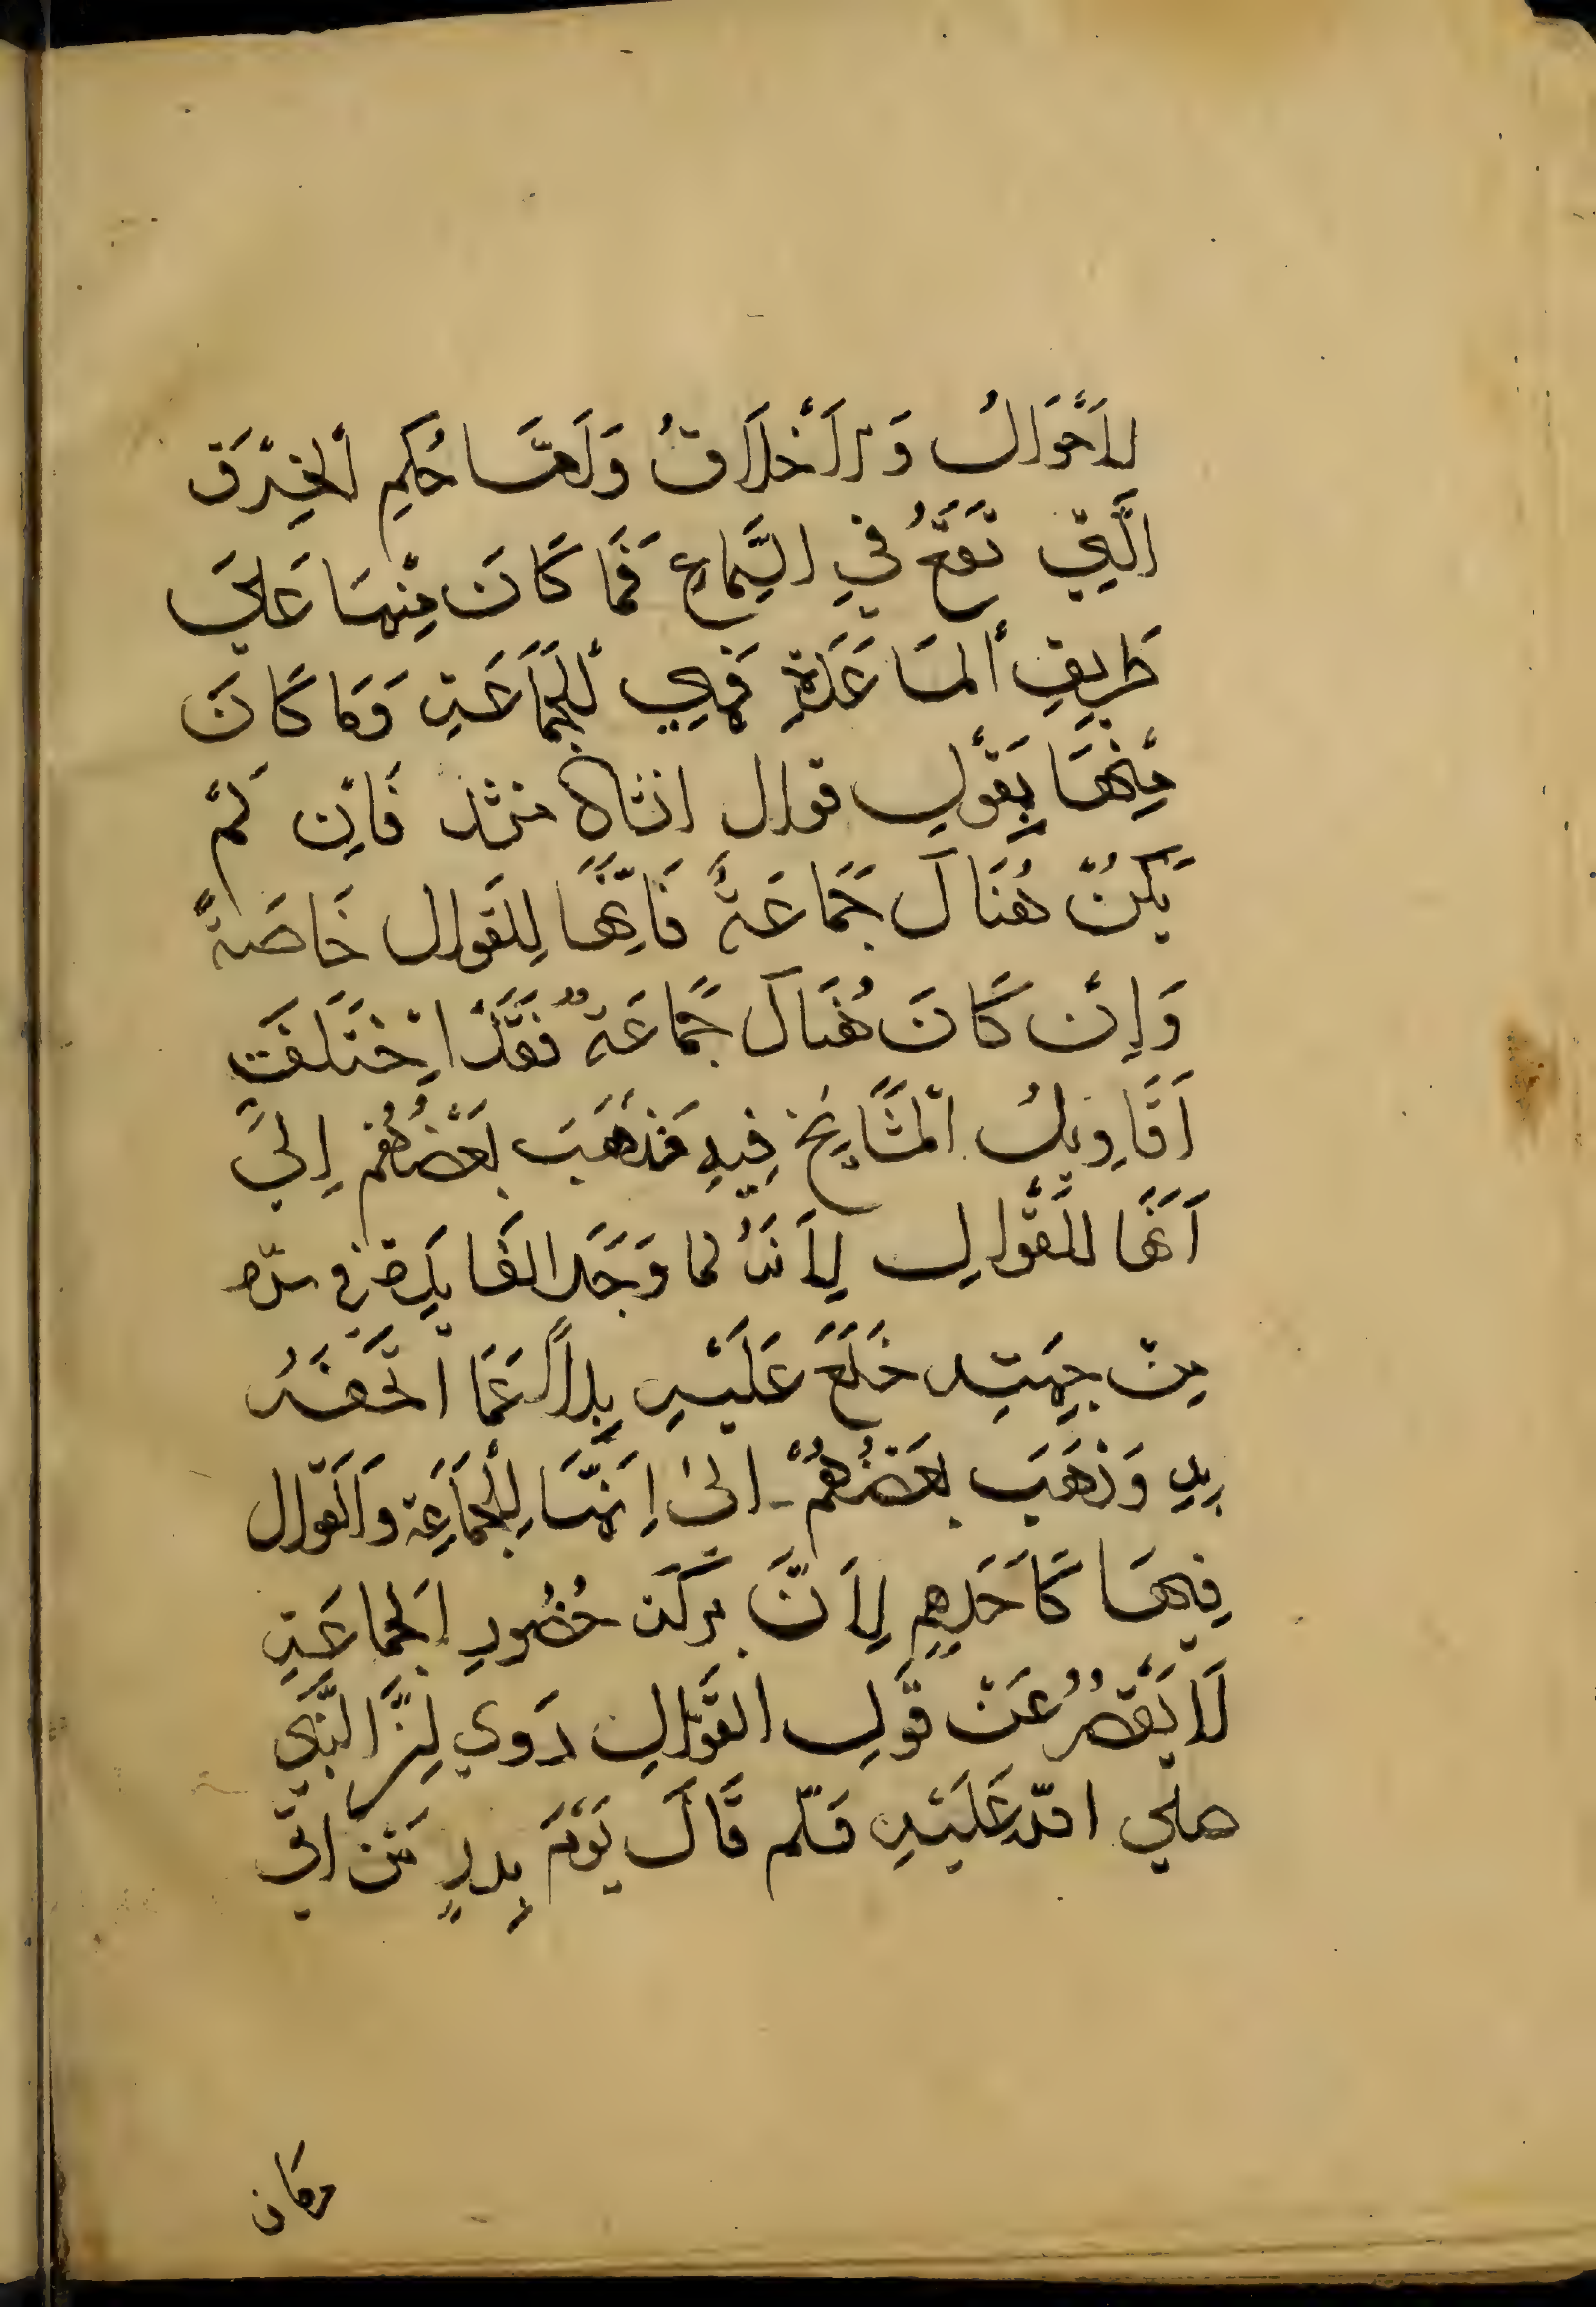 الأَحْوَالُ وَالأَخْلَاقُ وَأَمَّا حُكْمِ الْخِرَقِ
الَّتِي تَقَعُ فِي السَّمَاعِ فَمَا كَانَ مِنْهَا عَلَى
طَرِيقِ الْمُسَاعَدَةِ فَهِيَ لِلْجَمَاعَةِ وَمَا كَانَ
مِنْهَا بِقَوْلِ قوال فَإِن لَمْ
يَكُنْ هُنَاكَ جَمَاعَةٌ فَإِنَّهَا لِلقوال خَاصَةً
وَإِنْ كَانَ هُنَاكَ جَمَاعَةٌ فَقَدْ اخْتَلَفَت
أَقَاوِيلُ الْمَشَايِخِ فِيهِ فَذَهَبَ بَعْضُهُمْ إِلَى
أَنَّهَا لِلقَوَّالِ لِأَنَّهُ لما وَجَدَ الفَايِدَة في سره
مِنْ جِهَتِهِ خَلَعَ عَلَيْهِ بَدَلاً عَمَّا اتْحَفَهُ
بِهِ وَذَهَبَ بَعْضُهُمْ الى إِنَّهَا لِلْجَمَاعَةِ وَالقوال
فِيهَا كَأَحَدِهِم لِأَنَّ بركة حُضُورِ الجَمَاعَةِ
لَا يَقْصُرُ عَنْ قَوْلِ القَوَّالِ رَوي أَنَّ النَّبِي
صلي الله عَلَيْهِ وسلم قَالَ يَوْمَ بدرٍ مَنْ اتي
مكان